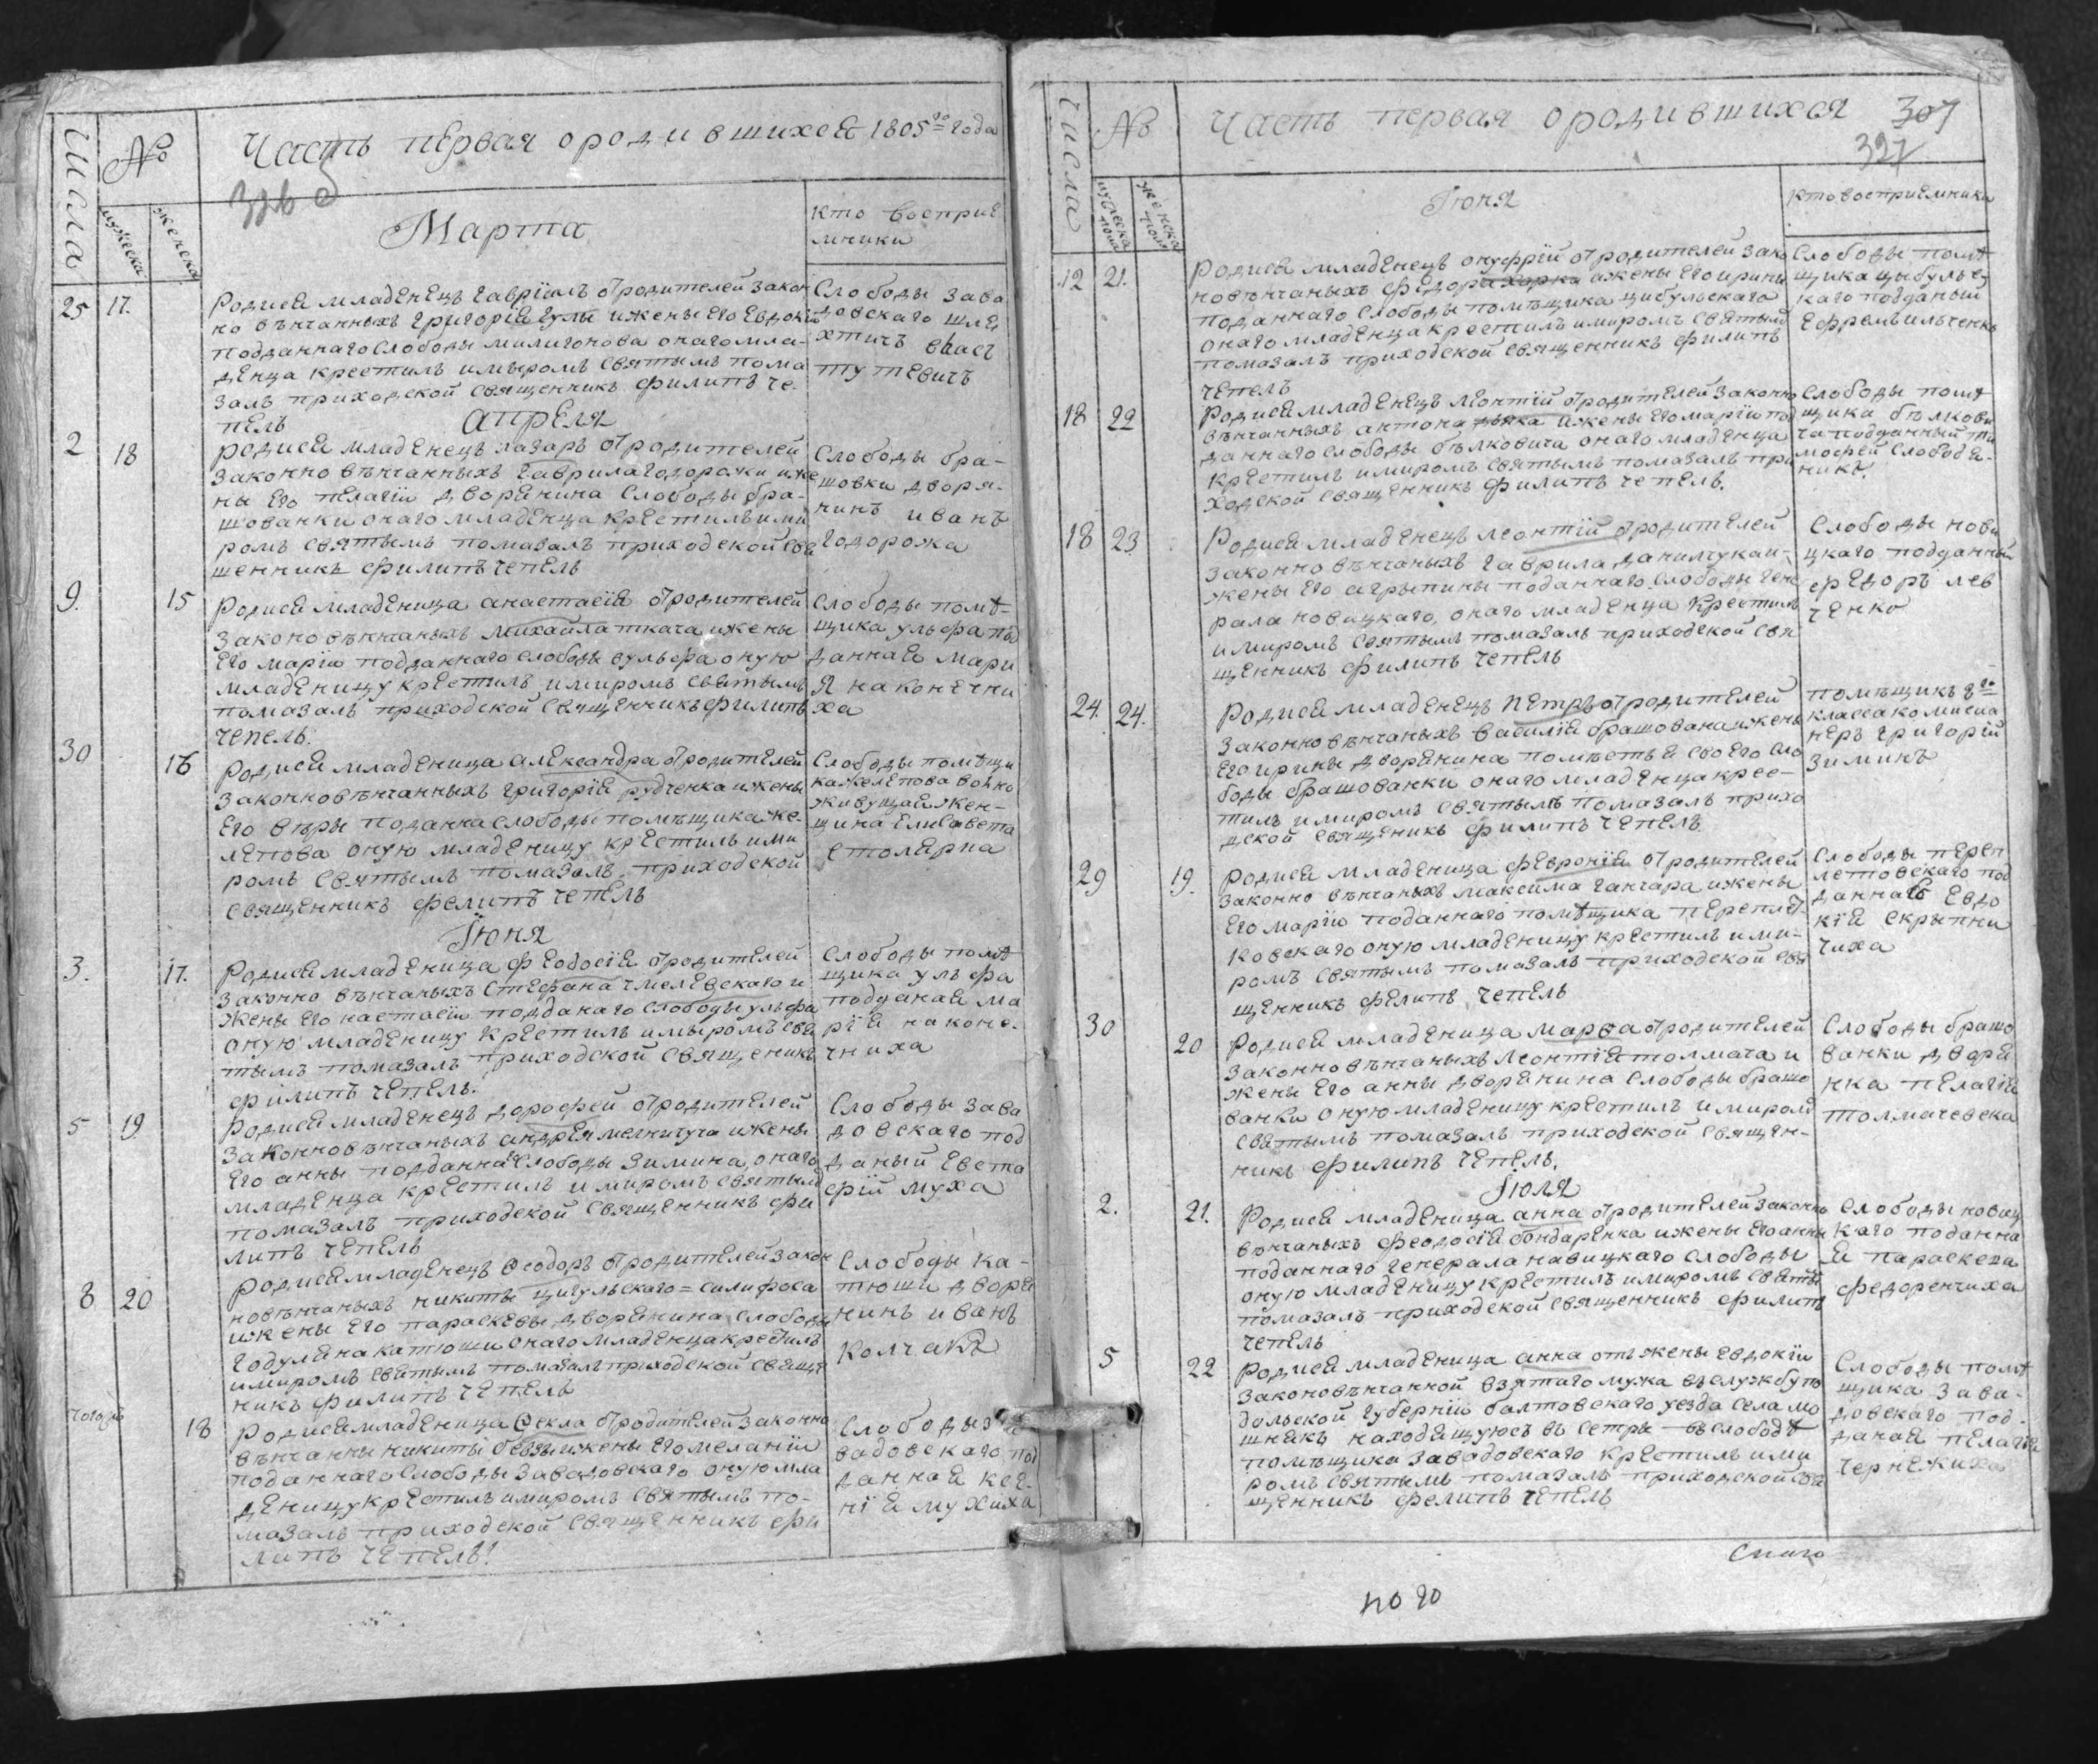 Числа
№
Часть первая ородившихся 1805го года
мужеска
женска
Марта
кто восприе
мники
25 17.
Родися младенецъ гавріилъ отродителей закон
но вѣнчанныхъ григорія гулы ижены его евдокіи
подданнаго слободы милигонова онаго мла-
денца крестилъ имыромъ святымъ пома
залъ приходской священникъ филипъ че-
пель
Слободы зава
довскаго шля
хтичъ
тутевичъ
апреля
2 18
родися младенецъ лазаръ отродителей
законно вѣнчанныхъ гаврила годорожи иже
ны его пелагіи дворянина слободы бра-
шованки онаго младенца крестилъ ими
ромъ святымъ помазалъ приходской свя
щенникъ филипъ чепель
Слободы бра-
шовки дворя-
нинъ иванъ
годорожа
9. 15
Родися младеница анастасія отродителей
законо вѣнчаныхъ михайла ткача ижены
его маріи подданнаго слободы вульфа оную
младеницу крестилъ имиромъ святымъ
помазалъ приходской священникъ филипъ
чепель.
слободы помѣ-
щика ульфа по
данная мари
я наконечни
ха
30 16
родися младеница александра отродителей
законновѣнчанныхъ григорія рудченка ижены
его вѣры поданна слободы помѣщика же-
лепова оную младеницу крестилъ ими
ромъ святымъ помазалъ приходской
священникъ филипъ чепель
Слободы помѣщи
ка желепова
живущая жен-
щина елисавета
столярка
Іюня
3. 17.
Родися младеница феодосія отродителей
законно вѣнчаныхъ стефана чмелевскаго и
жены его настасіи подданаго слободы ульфа
оную младеницу крестилъ имыромъ свя
тымъ помазалъ приходской священикъ
филипъ чепель.
слободы помѣ
щика ульфа
подданая ма
рія наконе-
чниха
5 19
родися младенецъ дорофей отродителей
законновѣнчаныхъ андрея ижены
его анны подданна слободы зимина, онаго
младенца крестилъ имиромъ святымъ
помазалъ приходской священникъ фи
липъ чепель
Слободы зава
довскаго под
даный евста
фій муха
8 20
родися младенецъ ѳеодоръ отродителей закон
новѣнчаныхъ никиты цигульскаго=
ижены его параскевы дворянина слободы
катюши онаго младенца крестилъ
имиромъ святымъ помазалъ приходской свяще
никъ филипъ чепель
Слободы ка-
тюши дворя
нинъ иванъ
колчакъ
18
родися младеница Ѳекла отродителей законно
вѣнчанны никиты ижены его меланіи
поданнаго слободы завадовскаго оную мла
деницу крестилъ имиромъ святымъ по-
мазалъ приходской священникъ фи
липъ чепель!
слободы за
вадовскаго под
данная ксе-
нія мухиха
Числа
№
Часть первая ородившихся
307
327
мужеска пола
женска пола
Іюня
кто восприемники
12 21.
Родися младенецъ онуфрій отродителей зако
новѣнчаныхъ федора ижены его ирины
поданнаго слободы помѣщика цибульскаго
онаго младенца крестилъ имиромъ святымъ
помазалъ приходской священникъ филипъ
чепель
Слободы помѣ
щика цыбульс
каго подданый
ефремъ ильченко
18 22
Родися младенецъ леонтій отродителей законно
вѣнчанныхъ антона дьяка ижены его маріи по
даннаго слободы бѣлковича онаго младенца
крестилъ имиромъ святымъ помазалъ при
ходской священникъ филипъ чепель.
слободы помѣ
щика бѣлкови
ча подданный ти
мофей слободя-
никъ.
18 23
Родися младенецъ леонтій отродителей
законно вѣнчаныхъ гаврила данилчука и-
жены его агрыпины поданнаго слободы гене
рала новицкаго, онаго младенца крестилъ
имиромъ святымъ помазалъ приходской свя
щенникъ филипъ чепель
слободы нови
цкаго подданный
федоръ лев
ченко
24. 24.
Родися младенецъ петръ отродителей
законновѣнчаныхъ василія брашована ижены
его ирины дворянина помѣстья своего сло
боды брашованки онаго младенца крес-
тилъ имиромъ святымъ помазалъ прихо
дской священикъ филипъ чепель
помѣщикъ 8го
класса комиссіо
неръ григорій
зиминъ
29 19.
Родися младеница февронія отродителей
законно вѣнчаныхъ максима ганчара ижены
его маріи поданнаго помѣщика переплет-
ковскаго оную младеницу крестилъ ими-
ромъ святымъ помазалъ приходской свя
щенникъ филипъ чепель
Слободы переп
летовскаго под
данная евдо
кія скрыпни
чиха
30 20
Родися младеница марѳа отродителей
законновѣнчаныхъ леонтія толмача и
жены его анны дворянина слободы брашо
ванки оную младеницу крестилъ имиромъ
святымъ помазалъ приходской священ-
никъ филипъ чепель.
слободы брашо
ванки дворя
нка пелагія
толмачевска
Іюля
2. 21.
Родися младеница анна отродителей законно
вѣнчаныхъ феодосія бондаренка ижены его анны
поданнаго генерала навицкаго слободы
оную младеницу крестилъ имиромъ святы
помазалъ приходской священникъ филипъ
чепель
слободы новиц
каго поданна
я параскева
федоренчиха
5 22
Родися младеница анна отъ жены евдокіи
законовѣнчанной взятаго мужа вслужбу по
дольской губерніи балтовскаго уезда села мо
шнякъ находящуюсъ въ сетры въ слободѣ
помѣщика завадовскаго крестилъ ими
ромъ святымъ помазалъ приходской свя
щенникъ филипъ чепель
Слободы помѣ
щика зава-
довскаго под-
даная пелагія
чернежиха